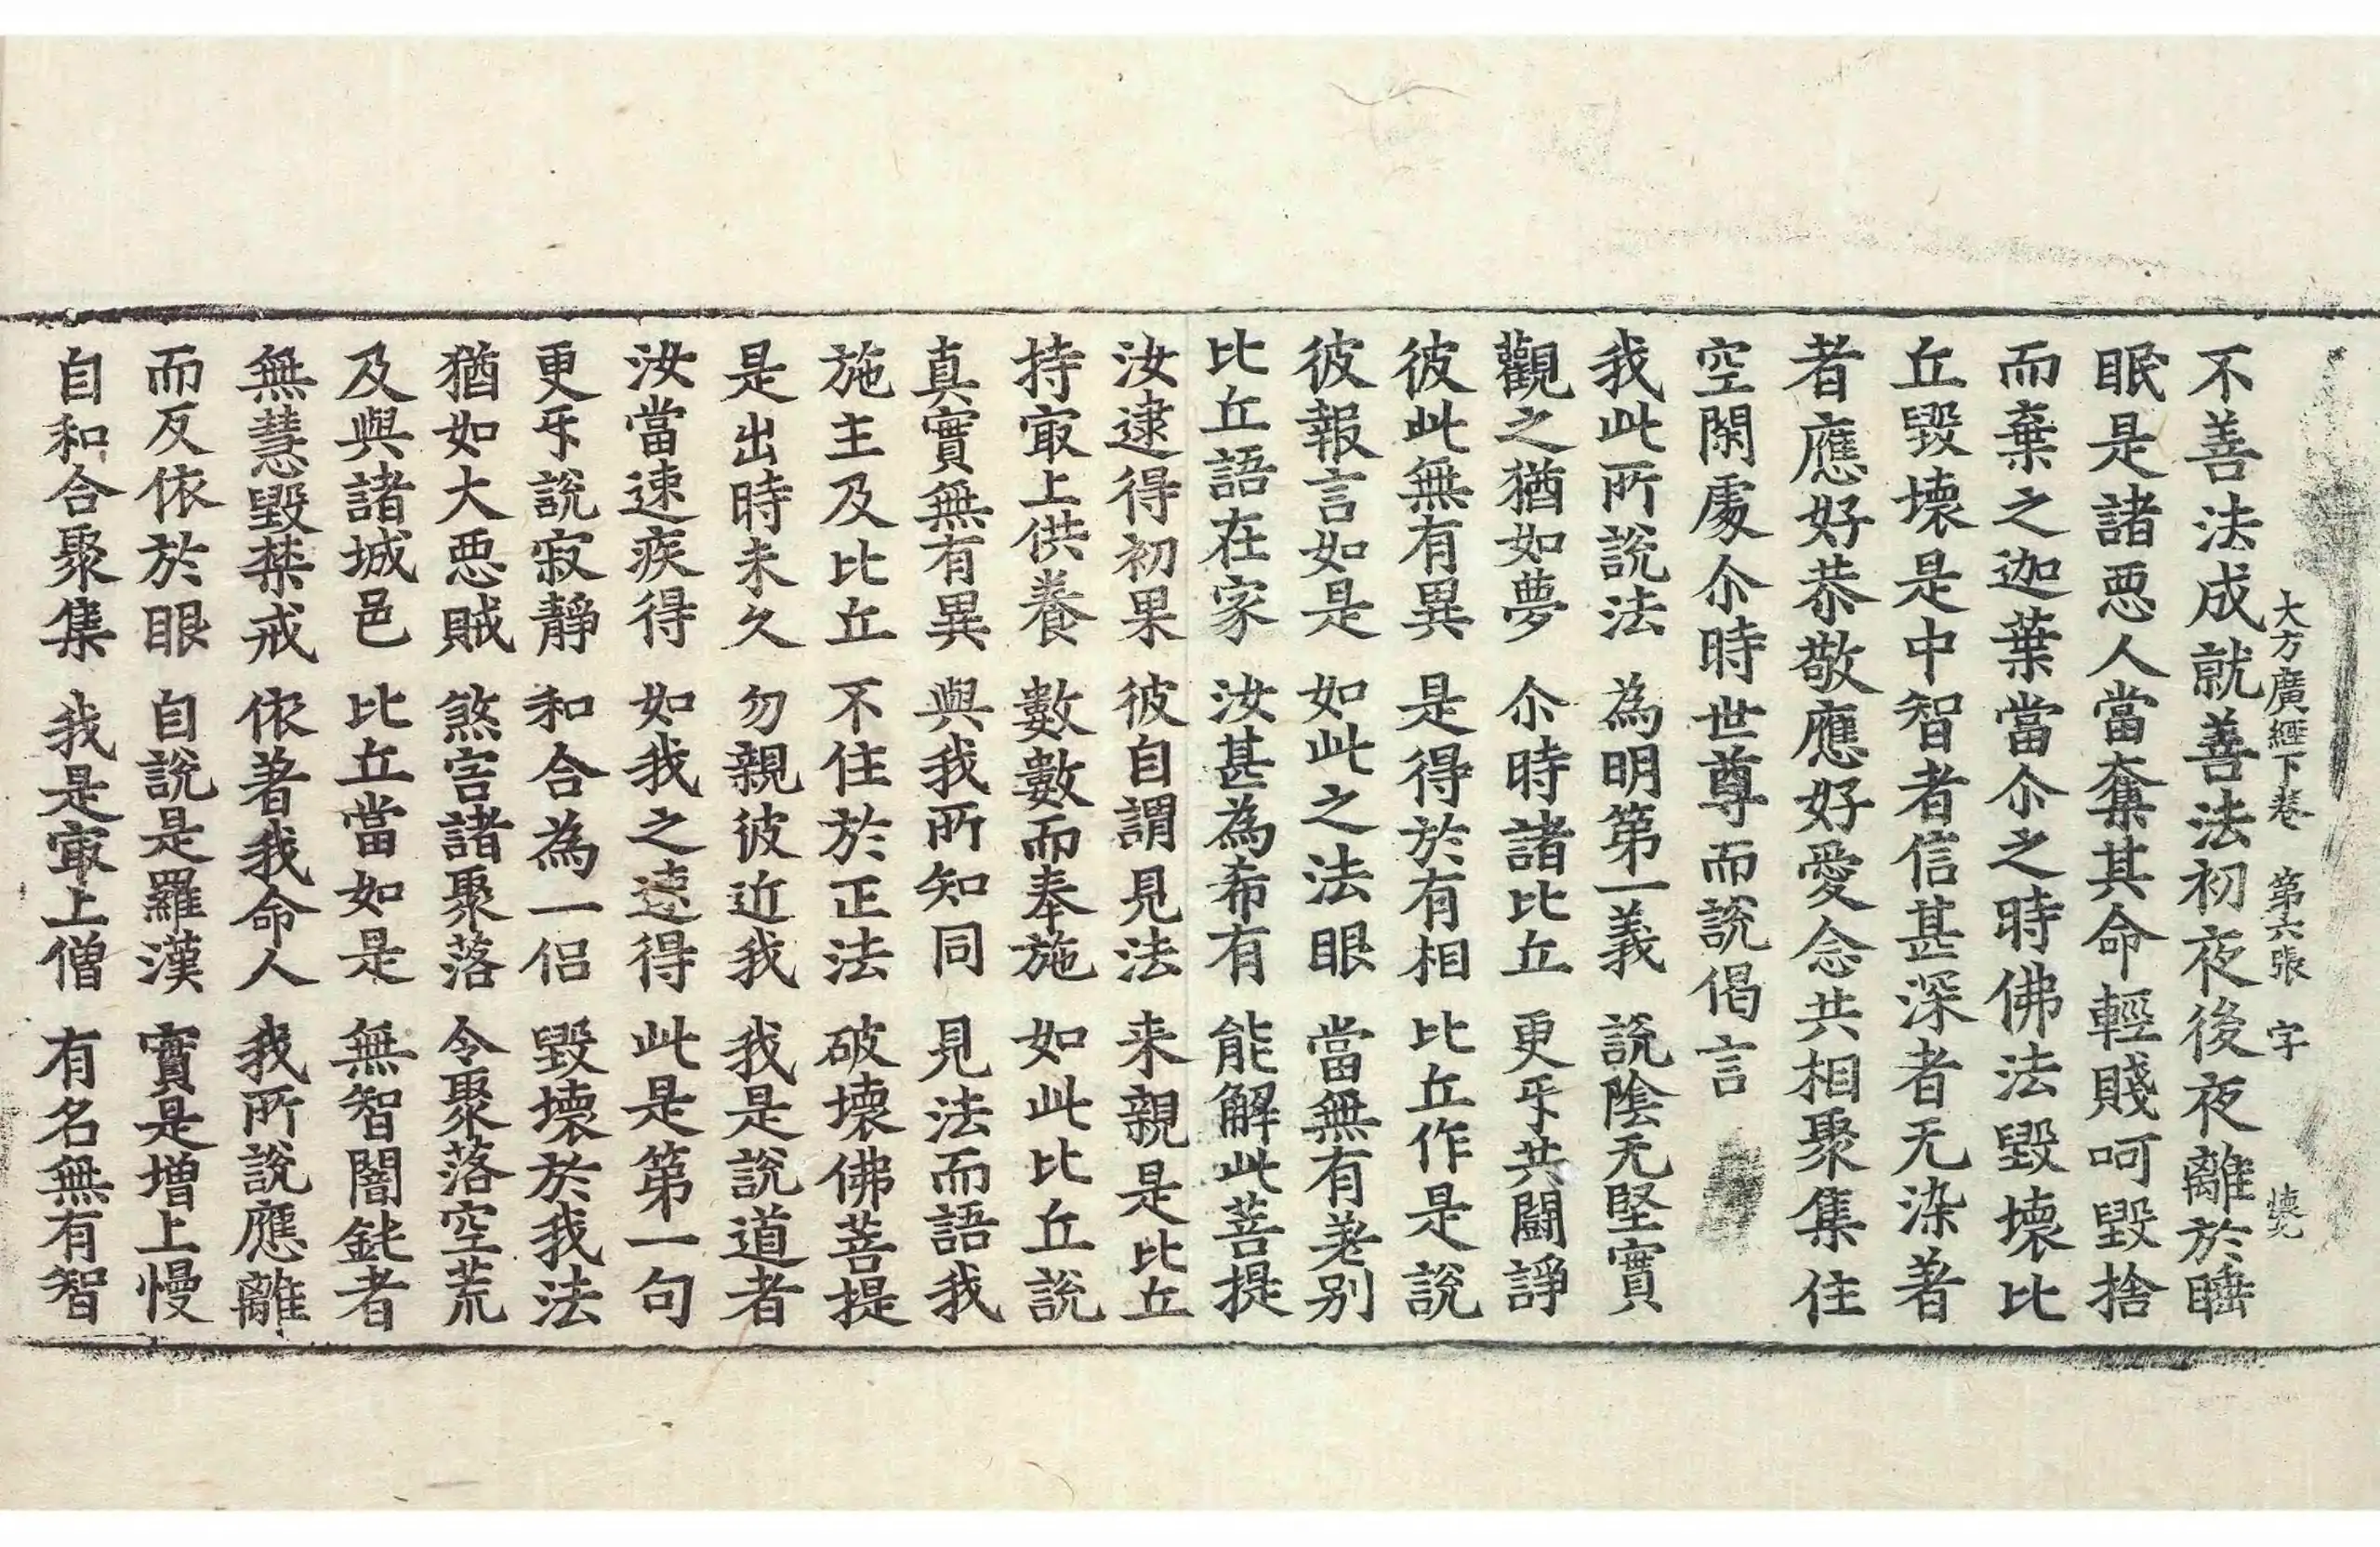 大方廣經下卷　第六張　字
不善法成就善法初夜後夜離於睡
眠是諸惡人當奪其命輕賤呵毀捨
而棄之迦葉當尒之時佛法毀壞比
丘毀壞是中智者信甚深者无染著
者應好恭敬應好愛念共相聚集住
空閑處尒時世尊而說偈言
我此所說法　為明第一義　說陰无堅實
觀之猶如夢　尒時諸比丘　更㸦共鬪諍
彼此無有異　是得於有相　比丘作是說
彼報言如是　如此之法眼　當無有差別
比丘語在家　汝甚為希有　能解此菩提
汝逮得初果　彼自謂見法　来親是比丘
持㝡上供養　數數而奉施　如此比丘說
真實無有異　與我所知同　見法而語我
施主及比丘　不住於正法　破壞佛菩提
是出時未久　勿親彼近我　我是說道者
汝當速疾得　如我之速得　此是第一句
更㸦說寂靜　和合為一侶　毀壞於我法
猶如大惡賊　煞害諸聚落　令聚落空荒
及與諸城邑　比丘當如是　無智闇鈍者
無慧毀禁戒　依著我命人　我所說應離
而反依於眼　自說是羅漢　實是增上慢
自和合聚集　我是㝡上僧　有名無有智